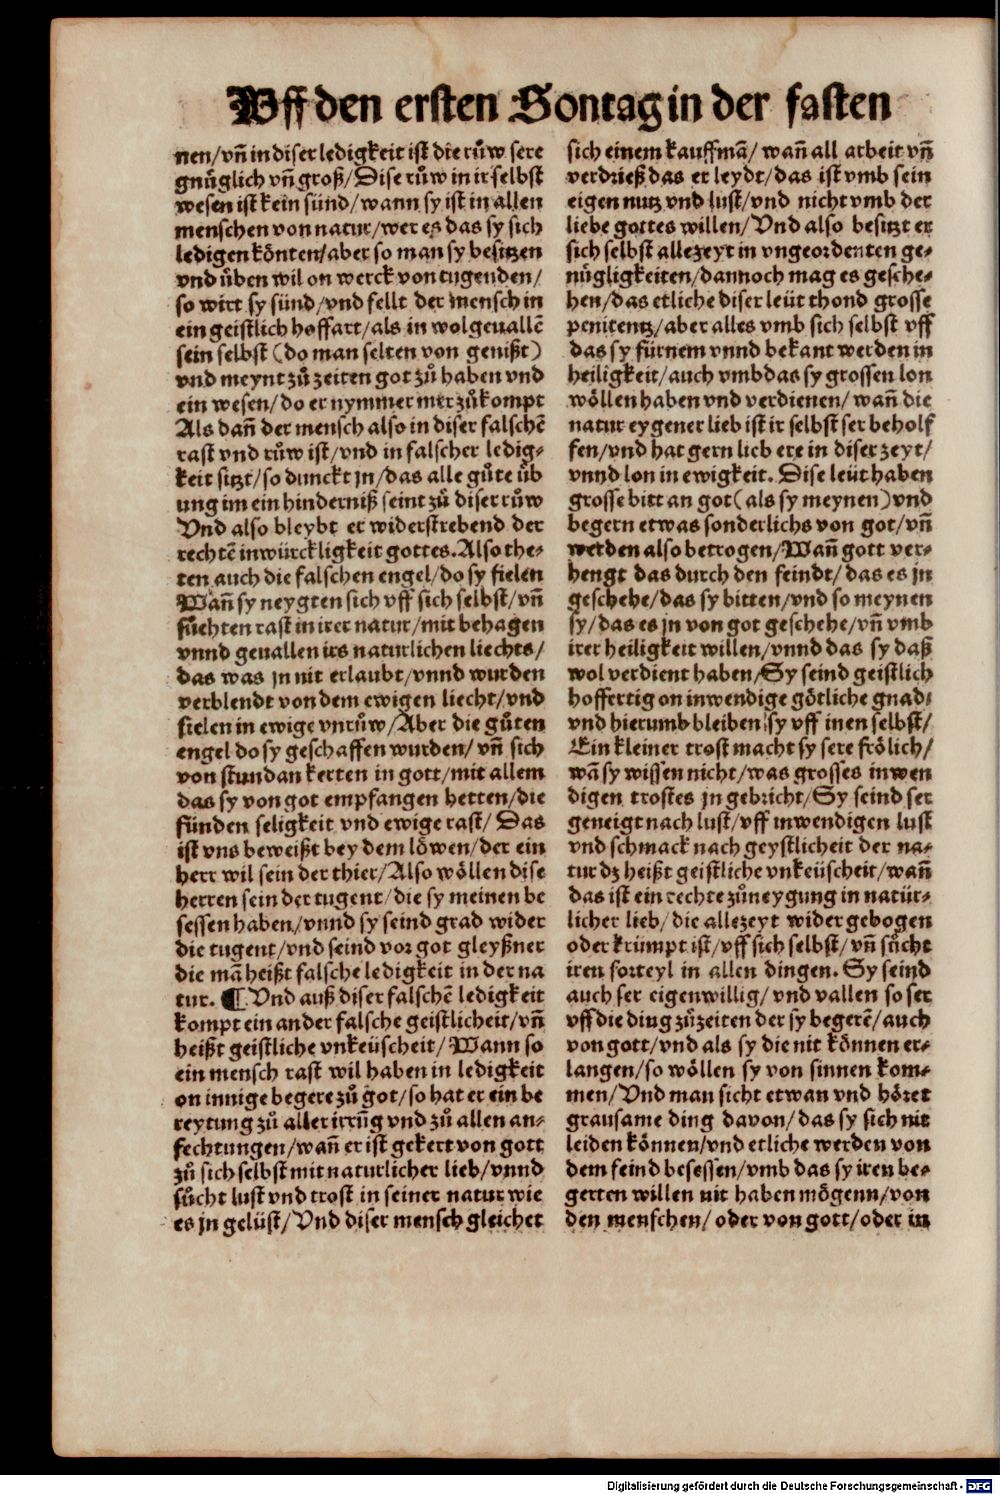 Uff den ersten Sontag in der fasten
nen/vñ in diser ledigkeit ist die růw sere
gnůglich vñ groß/Dise růw in ir selbst
wesen ist kein sünd/wann sy ist in allen
menschen von natur/wer es das sy sich
ledigen könten/aber so man sy besitzen
vnd ůben wil on werck von tugenden/
so wirt sy sünd/vnd fellt der mensch in
ein geistlich hoffart/als in wolgeuallē
sein selbst (do man selten von genißt)
vnd meynt zů zeiten got zů haben vnd
ein wesen/do er nymmer mer zůkompt
Als dañ der mensch also in diser falschē
rast vnd růw ist/vnd in falscher ledig-
keit sitzt/so dunckt jn/das alle gůte ůb
ung im ein hinderniß seint zů diser růw
Vnd also bleybt er widerstrebend der
rechtē inwürckligkeit gottes. Also the-
ten auch die falschen engel/do sy fielen
Wañ sy neygten sich vff sich selbst/vñ
sůchten rast in irer natur/mit behagen
vnnd geuallen irs naturlichen liechts/
das was jn nit erlaubt/vnnd wurden
verblendt von dem ewigen liecht/vnd
fielen in ewige vnrůw/Aber die gůten
engel do sy geschaffen wurden/vñ sich
von stund an kerten in gott/mit allem
das sy von got empfangen hetten/die
fünden seligkeit vnd ewige rast/Das
ist vns beweißt bey dem löwen/der ein
herr wil sein der thier/Also wöllen dise
herren sein der tugent/die sy meinen be
sessen haben/vnnd sy seind grad wider
die tugent/vnd seind vor got gleyßner
die mā heißt falsche ledigkeit in der na
tur. ¶ Vnd auß diser falschē ledigkeit
kompt ein ander falsche geistlicheit/vñ
heißt geistliche vnkeüscheit/Wann so
ein mensch rast wil haben in ledigkeit
on innige begere zů got/so hat er ein be
reytung zů aller irrūg vnd zů allen an-
fechtungen/wañ er ist gekert von gott
zů sich selbst mit naturlicher lieb/vnnd
sůcht lust vnd trost in seiner natur wie
es jn gelüst/Vnd diser mensch gleichet
sich einem kauffmā/wañ all arbeit vñ
verdrieß das er leydt/das ist vmb sein
eigen nutz vnd lust/vnd nicht vmb der
liebe gottes willen/Vnd also besitzt er
sich selbst allezeyt in vngeordenten ge-
nůgligkeiten/dannoch mag es gesche-
hen/das etliche diser leüt thond grosse
penitentz/aber alles vmb sich selbst vff
das sy fürnem vnnd bekant werden in
heiligkeit/auch vmb das sy grossen lon
wöllen haben vnd verdienen/wañ die
natur eygener lieb ist ir selbst ser beholf
fen/vnd hat gern lieb ere in diser zeyt/
vnnd lon in ewigkeit. Dise leüt haben
grosse bitt an got (als sy meynen) vnd
begern etwas sonderlichs von got/vñ
werden also betrogen/Wañ gott ver-
hengt das durch den feindt/das es jn
geschehe/das sy bitten/vnd so meynen
sy/das es jn von got geschehe/vñ vmb
irer heiligkeit willen/vnnd das sy daß
wol verdient haben/Sy seind geistlich
hoffertig on inwendige götliche gnad/
vnd hierumb bleiben sy vff inen selbst/
Ein kleiner trost macht sy sere frölich/
wā sy wissen nicht/was grosses inwen
digen trostes jn gebricht/Sy seind ser
geneigt nach lust/vff inwendigen lust
vnd schmack nach geystlicheit der na-
tur dz heißt geistliche vnkeüscheit/wañ
das ist ein rechte zůneygung in natür-
licher lieb/die allezeyt wider gebogen
oder krümpt ist/vff sich selbst/vñ sůcht
iren forteyl in allen dingen. Sy seind
auch ser eigenwillig/vnd vallen so ser
vff die ding zůzeiten der sy begerē/auch
von gott/vnd als sy die nit können er-
langen/so wöllen sy von sinnen kom-
men/Vnd man sicht etwan vnd höret
grausame ding davon/das sy sich nit
leiden können/vnd etliche werden von
dem feind besessen/vmb das sy iren be-
gerten willen nit haben mögenn/von
den menschen/oder von gott/oder in
Digitalisierung gefördert durch die Deutsche Forschungsgemeinschaft - DFG